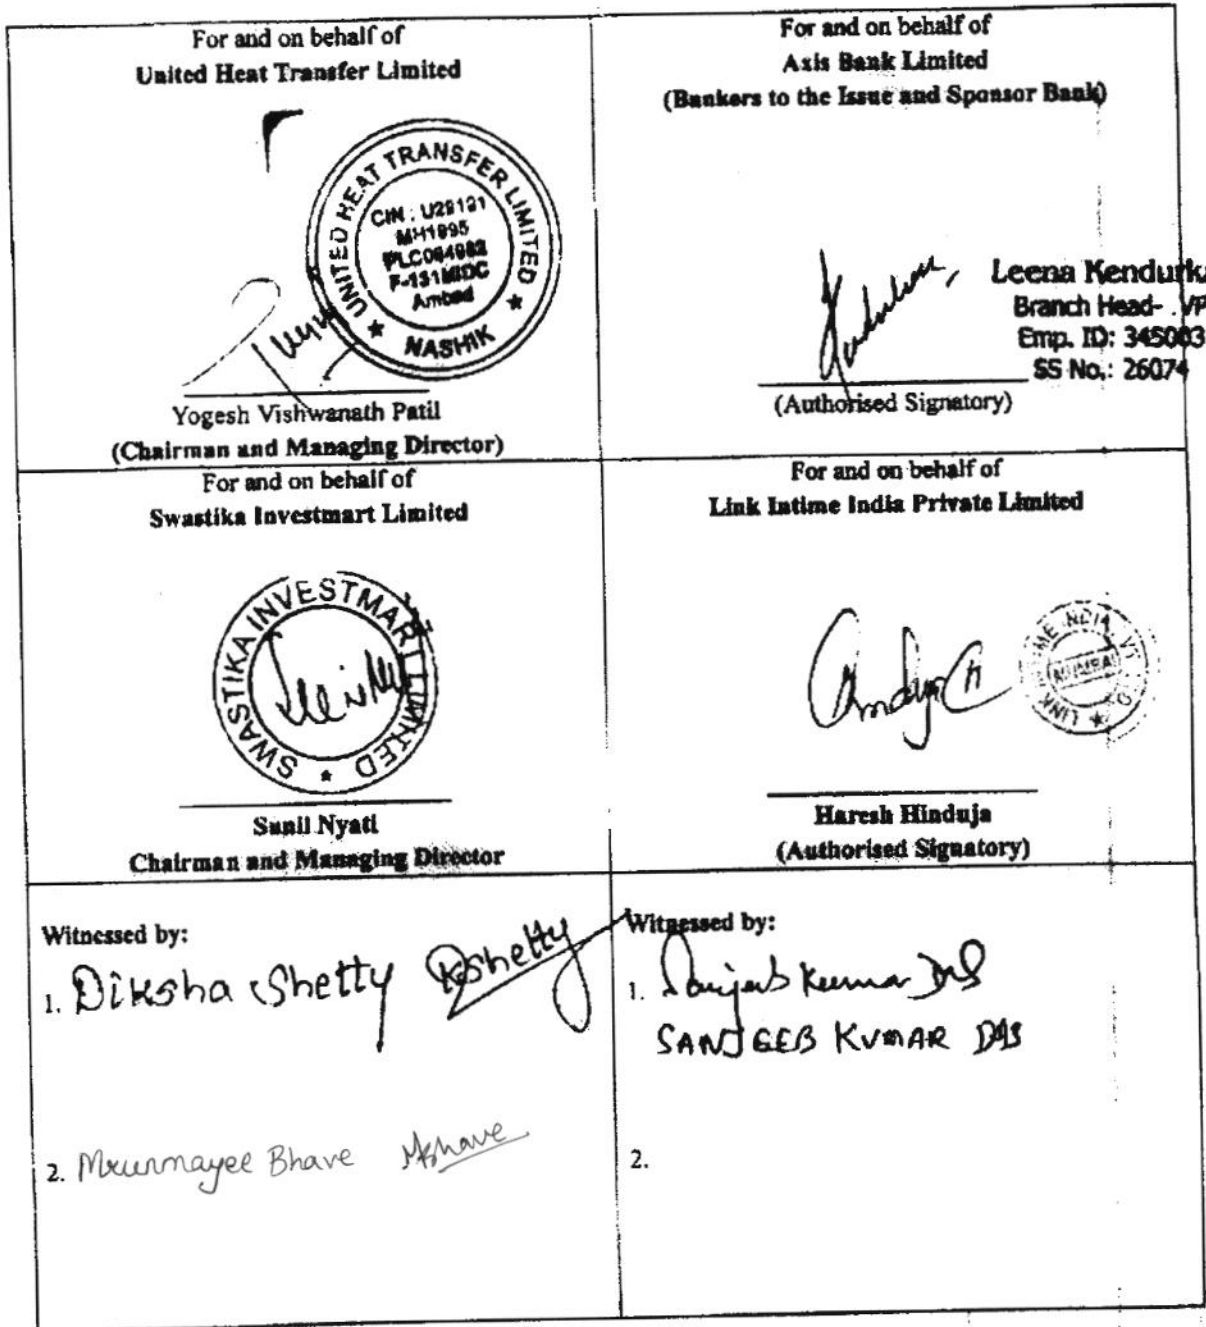 For and on behalf of
United Heat Transfer Limited
UNITED HEAT TRANSFER LIMITED
CIN : U29191
MH1995
PLC084982
F-131 MIDC
Ambad
★ NASHIK ★
Yogesh Vishwanath Patil
(Chairman and Managing Director)
For and on behalf of
Axis Bank Limited
(Bankers to the Issue and Sponsor Bank)
Leena Kendurka
Branch Head- VP
Emp. ID: 345003
SS No.: 26074
(Authorised Signatory)
For and on behalf of
Swastika Investmart Limited
SWASTIKA INVESTMART LIMITED
★
Sunil Nyati
Chairman and Managing Director
For and on behalf of
Link Intime India Private Limited
LINK
MUMBAI
Haresh Hinduja
(Authorised Signatory)
Witnessed by:
1. Diksha Shetty Dshetty
2. Mrunmayee Bhave MBhave
Witnessed by:
1. Sanjeeb Kumar Das
SANJEEB KUMAR DAS
2.